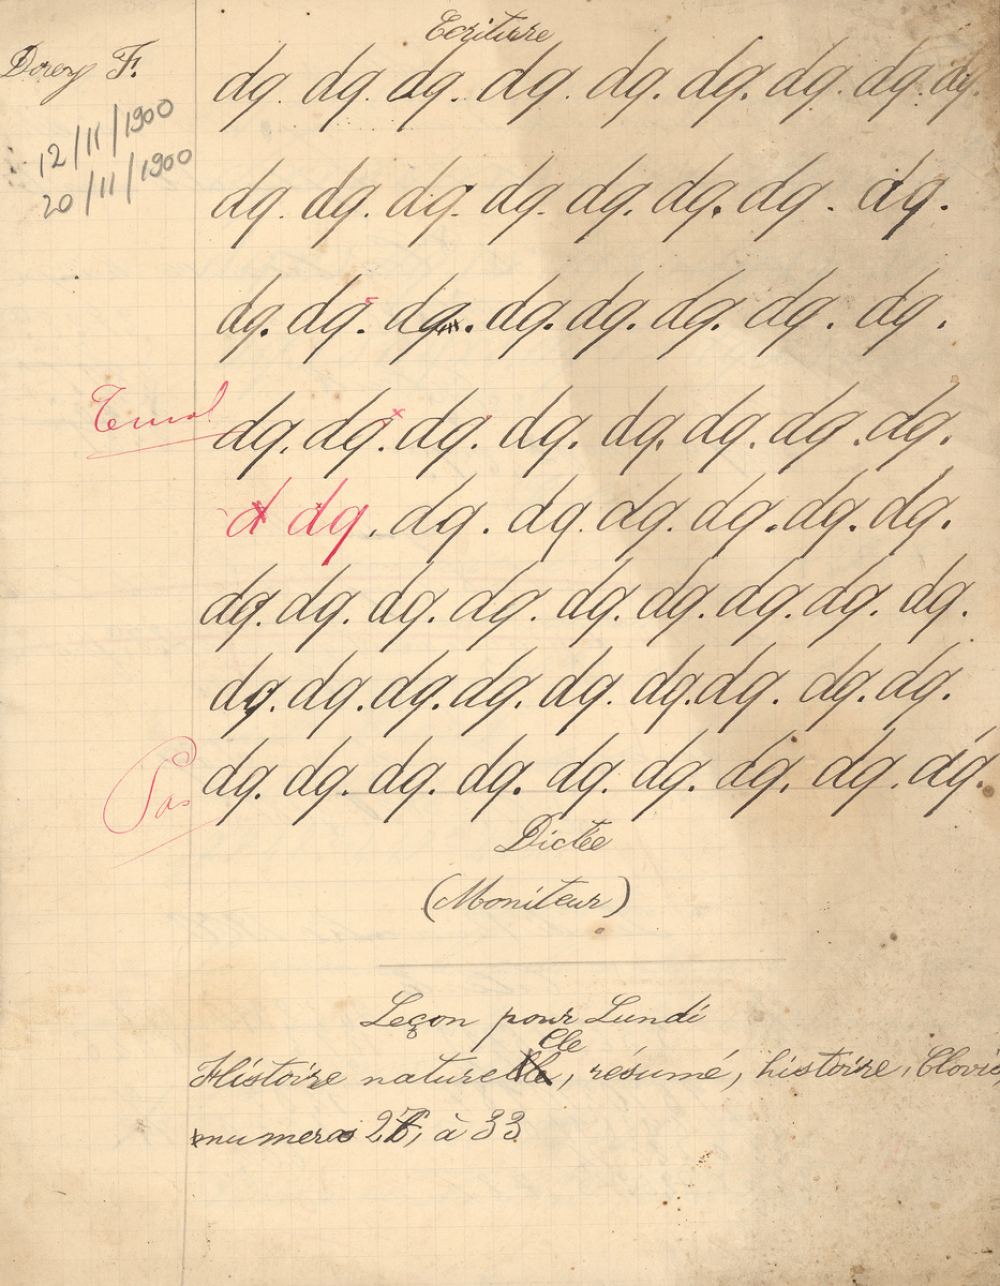 Ecriture
Dorey F.
12/11/1900
20/11/1900
dq. dq. dq. dq. dq. dq. dq. dq. dq.
dq. dq. dq. dq. dq. dq. dq. dq.
dq. dq. dq. dq. dq. dq. dq. dq.
dq. dq. dq. dq. dq. dq. dq. dq.
d dq. dq. dq. dq. dq. dq. dq.
dq. dq. dq. dq. dq. dq. dq. dq. dq.
dq. dq. dq. dq. dq. dq. dq. dq. dq.
Pas
dq. dq. dq. dq. dq. dq. dq. dq. dq.
Dictée
(Moniteur)
Leçon pour Lundi
Histoire naturelle, résumé, histoire, Clovis,
numeros 27, à 33